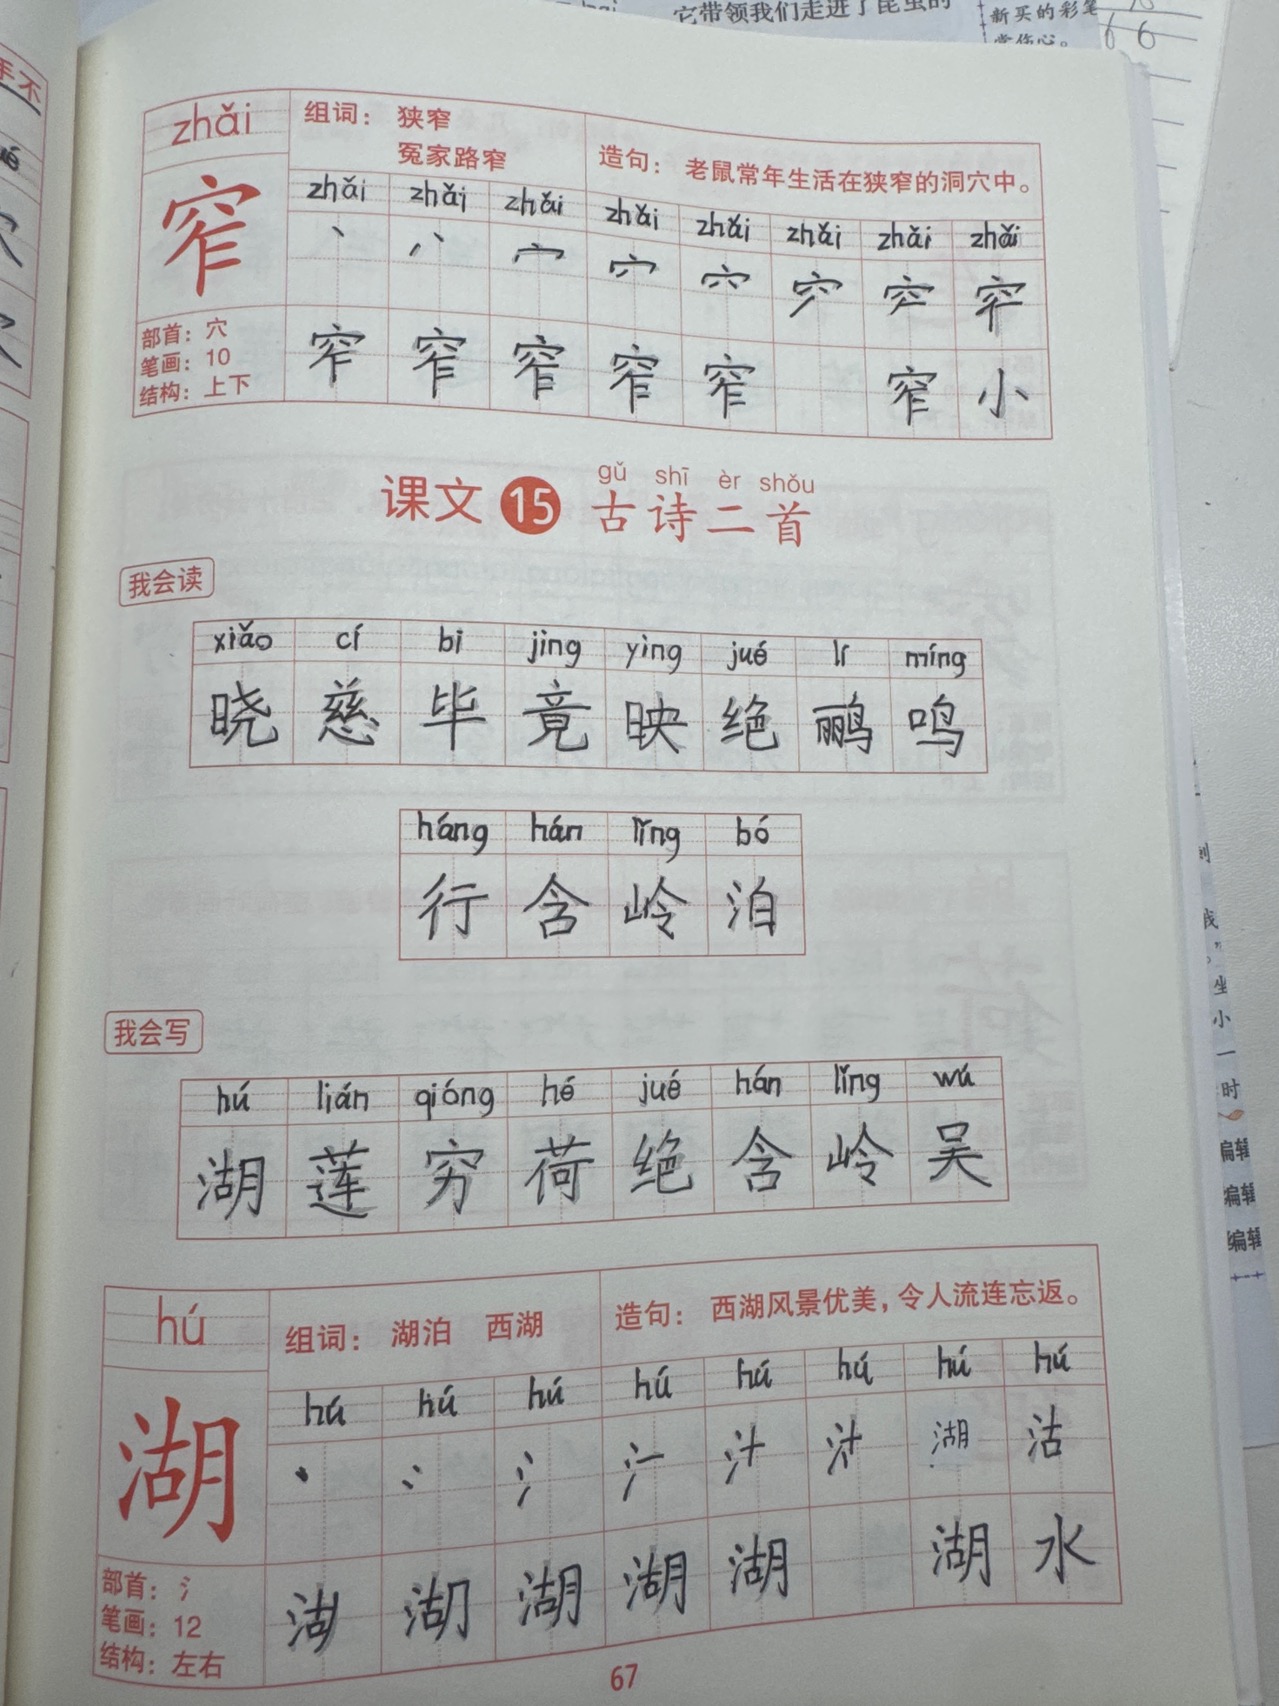 它带领我们走进了昆虫的
新买的彩笔
常伤心。
66
手不
zhǎi
组词：狭窄
冤家路窄
造句：老鼠常年生活在狭窄的洞穴中。
zhǎi zhǎi zhǎi zhǎi zhǎi zhǎi zhǎi zhǎi
窄
部首：穴
笔画：10
结构：上下
窄 窄 窄 窄 窄 窄 小
课文 15 古诗二首
gǔ shī èr shǒu
我会读
xiǎo cí bì jìng yìng jué lí míng
晓 慈 毕 竟 映 绝 鹂 鸣
háng hán lǐng bó
行 含 岭 泊
我会写
hú lián qióng hé jué hán lǐng wú
湖 莲 穷 荷 绝 含 岭 吴
hú
组词：湖泊 西湖
造句：西湖风景优美，令人流连忘返。
hú hú hú hú hú hú hú hú
湖
丶 冫 氵 汁 湖 沽
部首：氵
笔画：12
结构：左右
湖 湖 湖 湖 水
67
坐
小
一
时
编辑
编辑
编辑